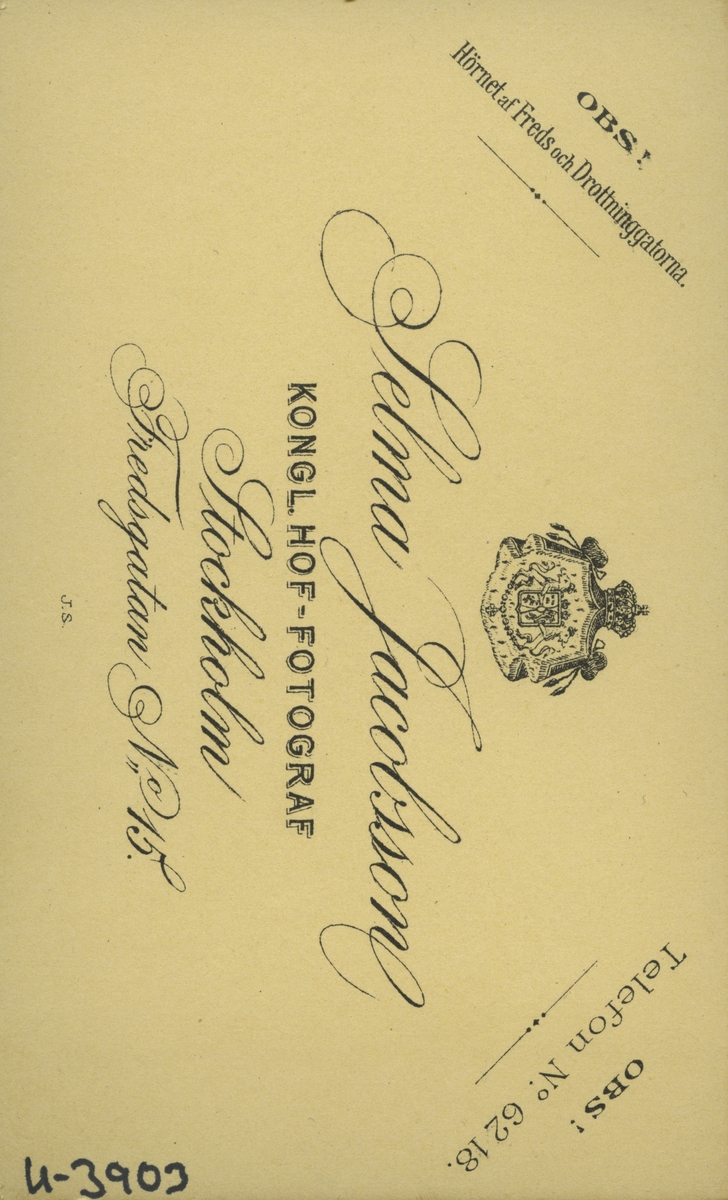 OBS!
Hörnet af Freds och Drottninggatorna.
OBS!
Telefon No. 6218.
Selma Jacobsson
KONGL. HOF-FOTOGRAF
Stockholm
Fredsgatan No. 15.
J.S.
U-3903